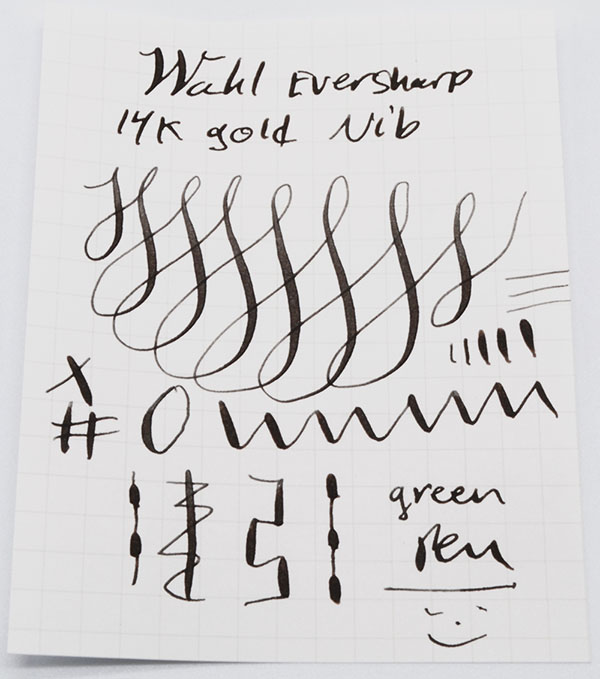 Wahl Eversharp
14K gold Nib
X
#
green
pen